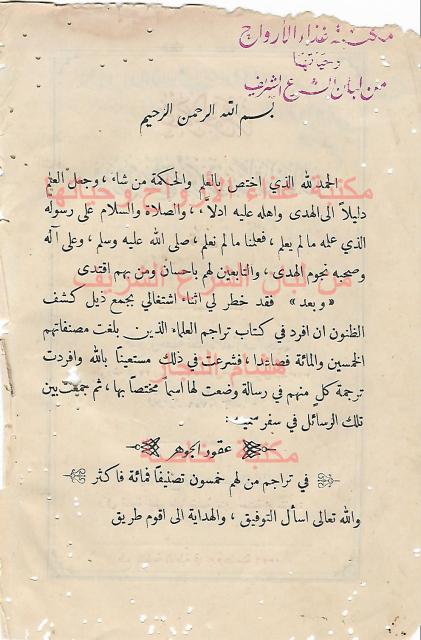 مكتبة غذاء الأرواح
وحياتها
من لبان الشرع الشريف
بسم الله الرحمن الرحيم
الحمد لله الذي اختص بالعلم والحكمة من شاء ، وجعل العلم
مكتبة غذاء الأرواح وحياتها
دليلاً الى الهدى واهله عليه ادلاّء ، والصلاة والسلام على رسوله
الذي علمه ما لم يعلم ، فعلنا ما لم نعلم ، صلى الله عليه وسلم ، وعلى آله
وصحبه نجوم الهدى ، والتابعين لهم باحسان ومن بهم اقتدى
من لبان الشرع الشريف
« وبعد » فقد خطر لي اثناء اشتغالي بجمع ذيل كشف
الظنون ان افرد في كتاب تراجم العلماء الذين بلغت مصنفاتهم
الخمسين والمائة فصاعدا ، فشرعت في ذلك مستعيناً بالله وافردت
هشام النجار
ترجمة كل منهم في رسالة وضعت لها اسماً مختصاً بها ، ثم جمعت بين
تلك الرسائل في سفر سميته :
مكتبة خاصة
عقود الجوهر
في تراجم من لهم خمسون تصنيفاً فمائة فاكثر
والله تعالى اسأل التوفيق ، والهداية الى اقوم طريق